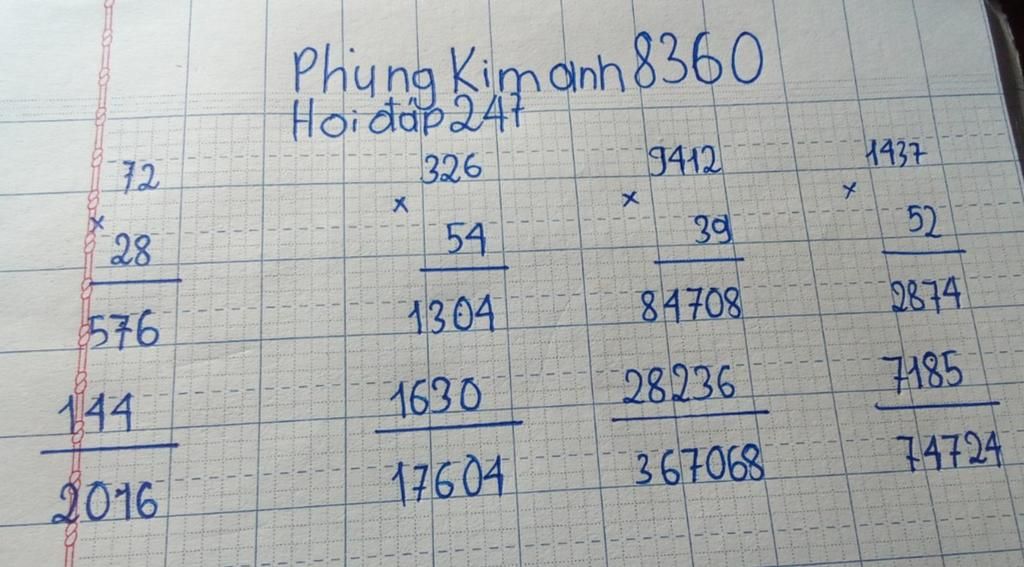 Phụng Kim anh 8360
Hoi đáp 247
72 326 9412 1437
× × × ×
28 54 39 52
576 1304 84708 2874
144 1630 28236 7185
2016 17604 367068 74724